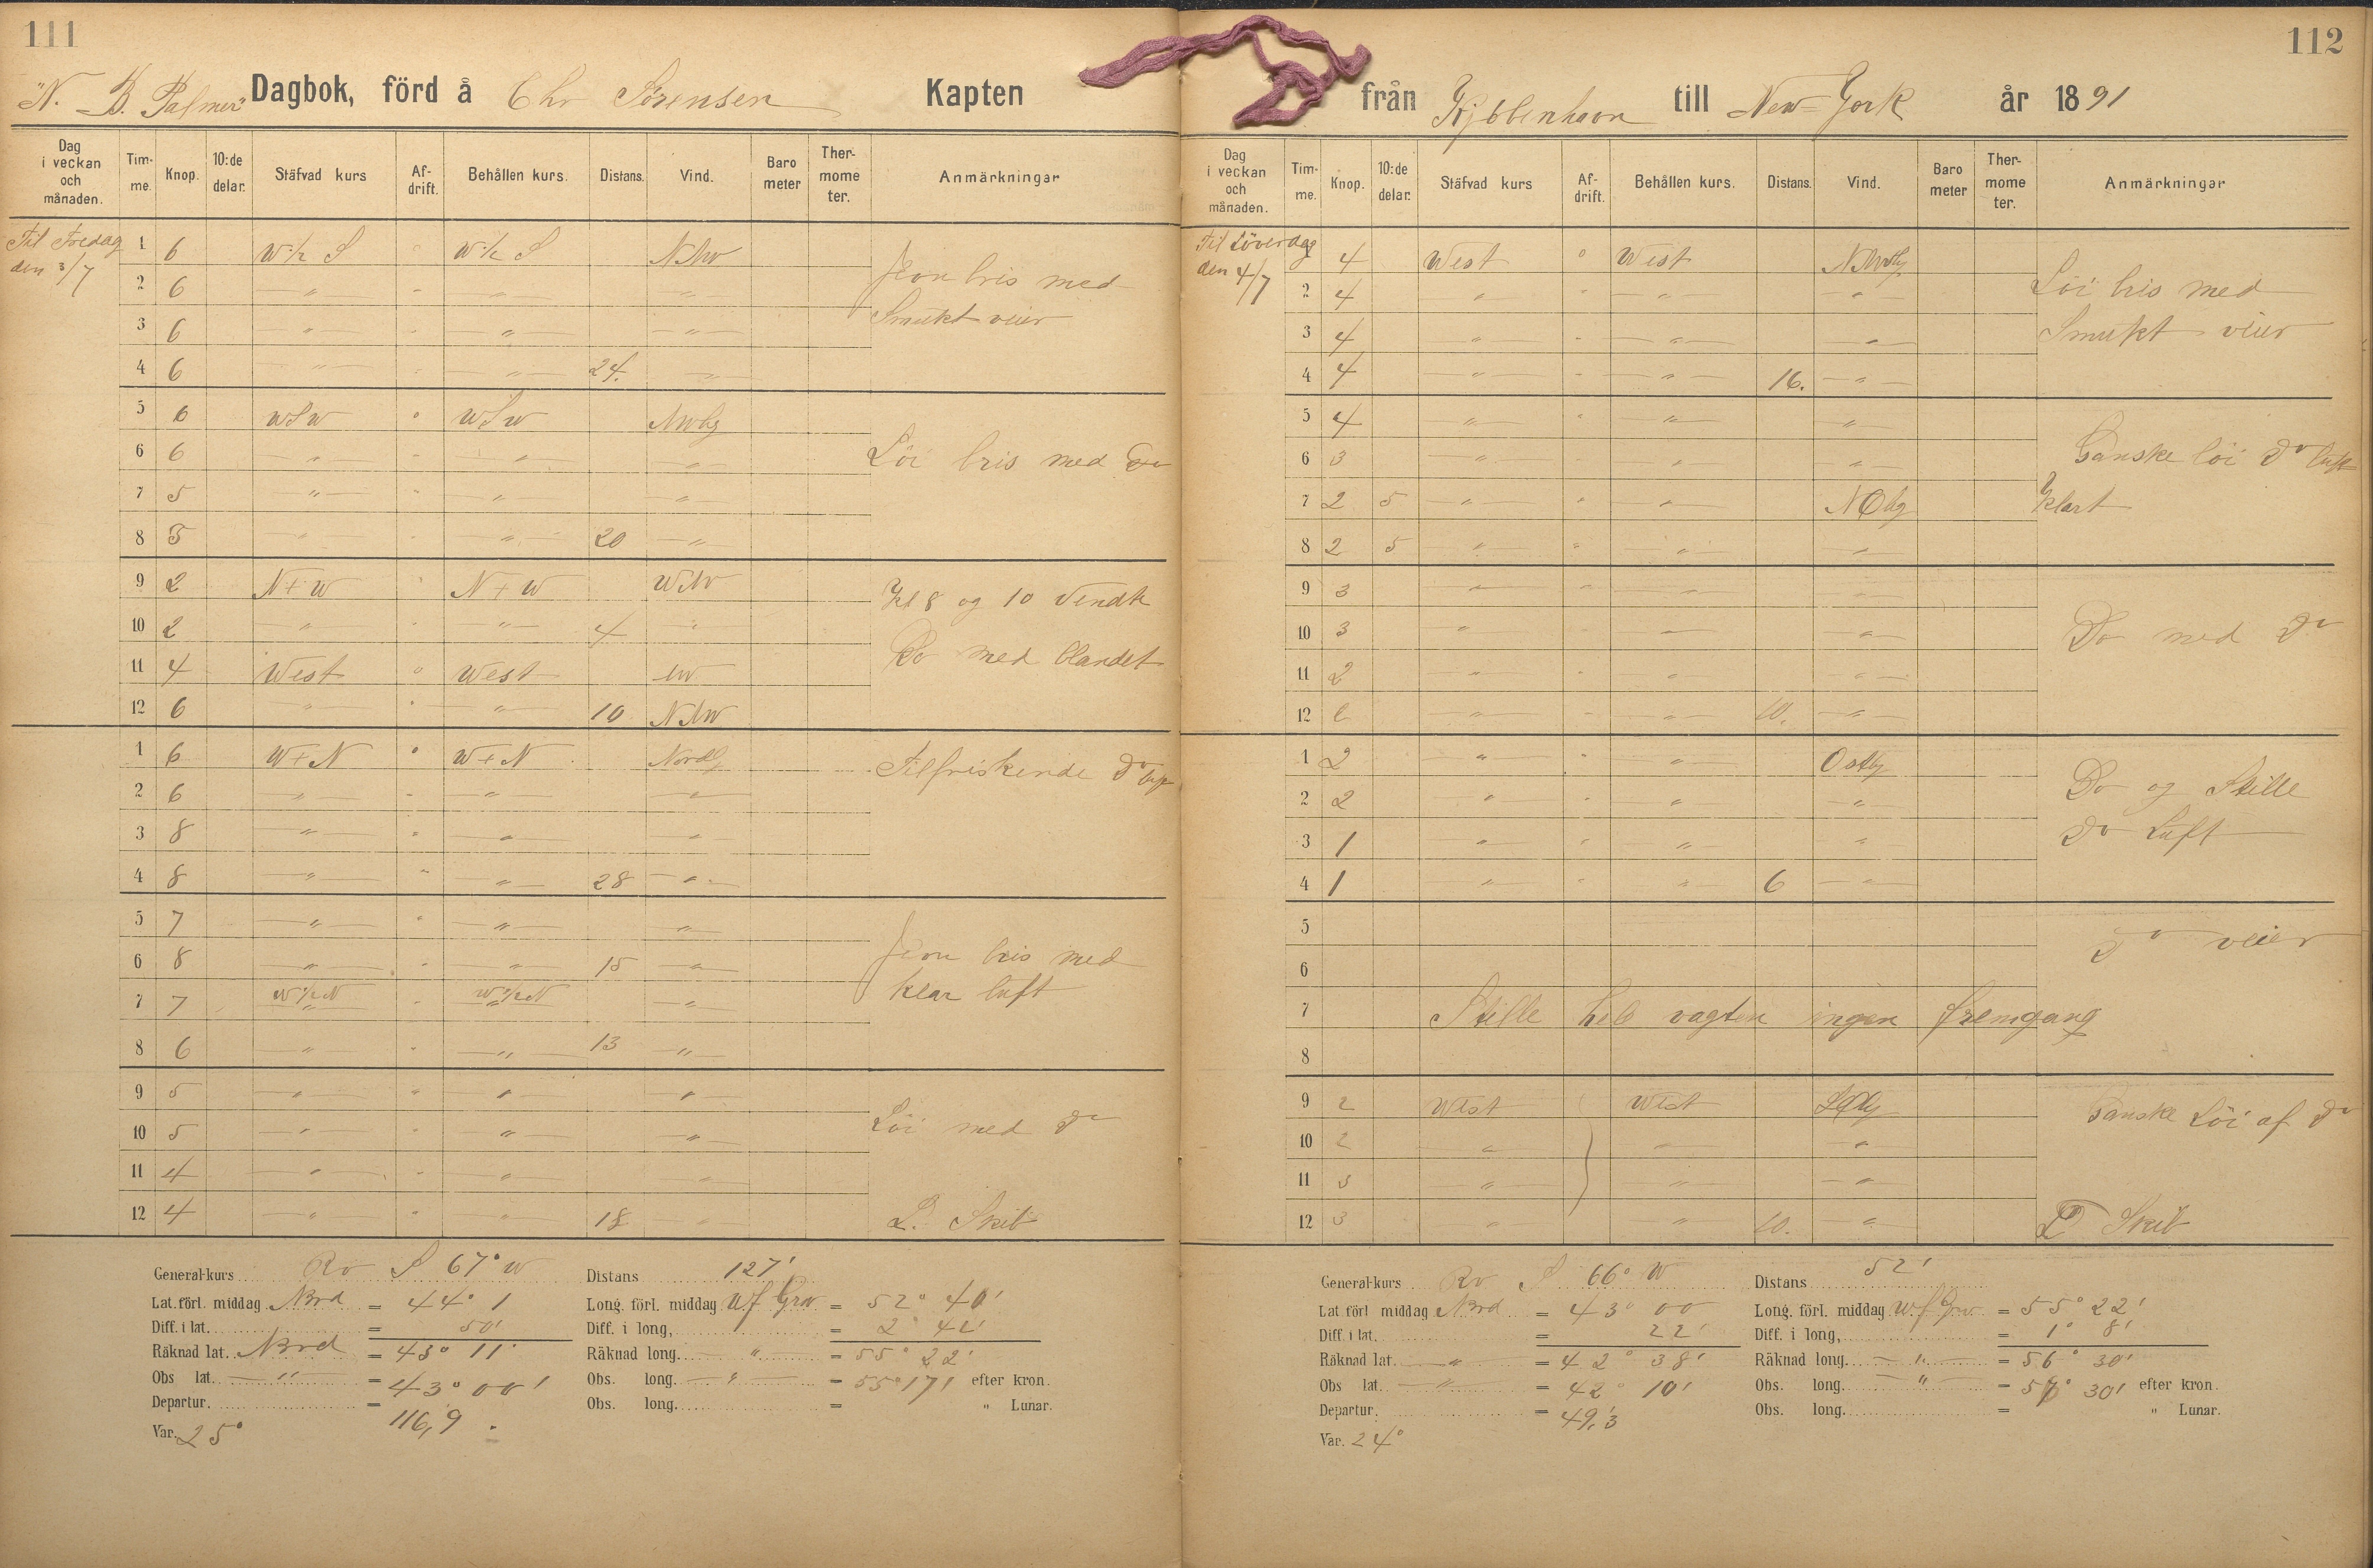 111
"N. B. Palmer" Dagbok, förd å Chr Sörensen Kapten
Dag i veckan och månaden. Tim-me. Knop. 10:de delar. Stäfvad kurs Af-drift. Behållen kurs. Distans. Vind. Baro meter Ther-mome ter. Anmärkningar
Til Fredag 1 6 W½ S " W½ S NNW
den 3/7
Jevn bris med
2 6 " " " "
Smukt veier
3 6 " " " "
4 6 " " " 24. "
5 6 WSW " WSW NWlig
6 6 " " " " Löi bris med Do
7 5 " " " "
8 5 " " " 20 "
9 2 N+W " N+W WNW
Kl 8 og 10 Vendt
10 2 " " " 4 "
Do med blandet
11 4 West " West NW
12 6 " " " 10 NNW
1 6 W+N " W+N Nordlig
Tilfriskende Do luft
2 6 " " " "
3 8 " " " "
4 8 " " " 28 "
5 7 " " " "
Jevn bris med
6 8 " " " 15 "
klar luft
7 7 W½N " W½N "
8 6 " " " 13 "
9 5 " " " "
Löi med Do
10 5 " " " "
11 4 " " " "
12 4 " " " 18 " L. Skib
General-kurs Rv S 67° W Distans 127'
Lat. förl. middag Nord = 44° 1 Long. förl. middag Wf Grw = 52° 40'
Diff. i lat. = 50' Diff. i long, = 2° 42'
Räknad lat. Nord = 43° 11' Räknad long. " = 55° 22'
Obs lat. " = 43° 00' Obs. long. " = 55° 17' efter kron.
Departur. = 116,9 Obs. long. = " Lunar.
Var. 25°
112
från Kjöbbenhavn till New-York år 1891
Dag i veckan och månaden. Tim-me. Knop. 10:de delar. Stäfvad kurs Af-drift. Behållen kurs. Distans. Vind. Baro meter Ther-mome ter. Anmärkningar
Til Löverdag 1 4 West " West NNWlig
den 4/7
Löi bris med
2 4 " " " "
Smukt veier
3 4 " " " "
4 4 " " " 16. "
5 4 " " " "
Ganske löi Do luft
6 3 " " " "
klart
7 2 5 " " " NOlig
8 2 5 " " " "
9 3 " " " "
10 3 " " " " Do med Do
11 2 " " " "
12 2 " " " 10. "
1 2 " " " Ostlig
Do og Stille
2 2 " " " "
Do Luft
3 1 " " " "
4 1 " " " 6 "
5
Do veier
6
7 Stille hele vagten ingen fremgang
8
9 2 West West SOlig
Ganske Löi af Do
10 2 " " "
11 3 " " "
12 3 " " 10. " L Skib
General-kurs Rv S 66° W Distans 52'
Lat förl middag Nord = 43° 00 Long. förl. middag Wf Grw = 55° 22'
Diff. i lat. = 22' Diff. i long, = 1° 8'
Räknad lat. " = 42° 38' Räknad long. " = 56° 30'
Obs lat. " = 42° 10' Obs. long. " = 57° 30' efter kron.
Departur. = 49,3 Obs. long. = " Lunar.
Var. 24°